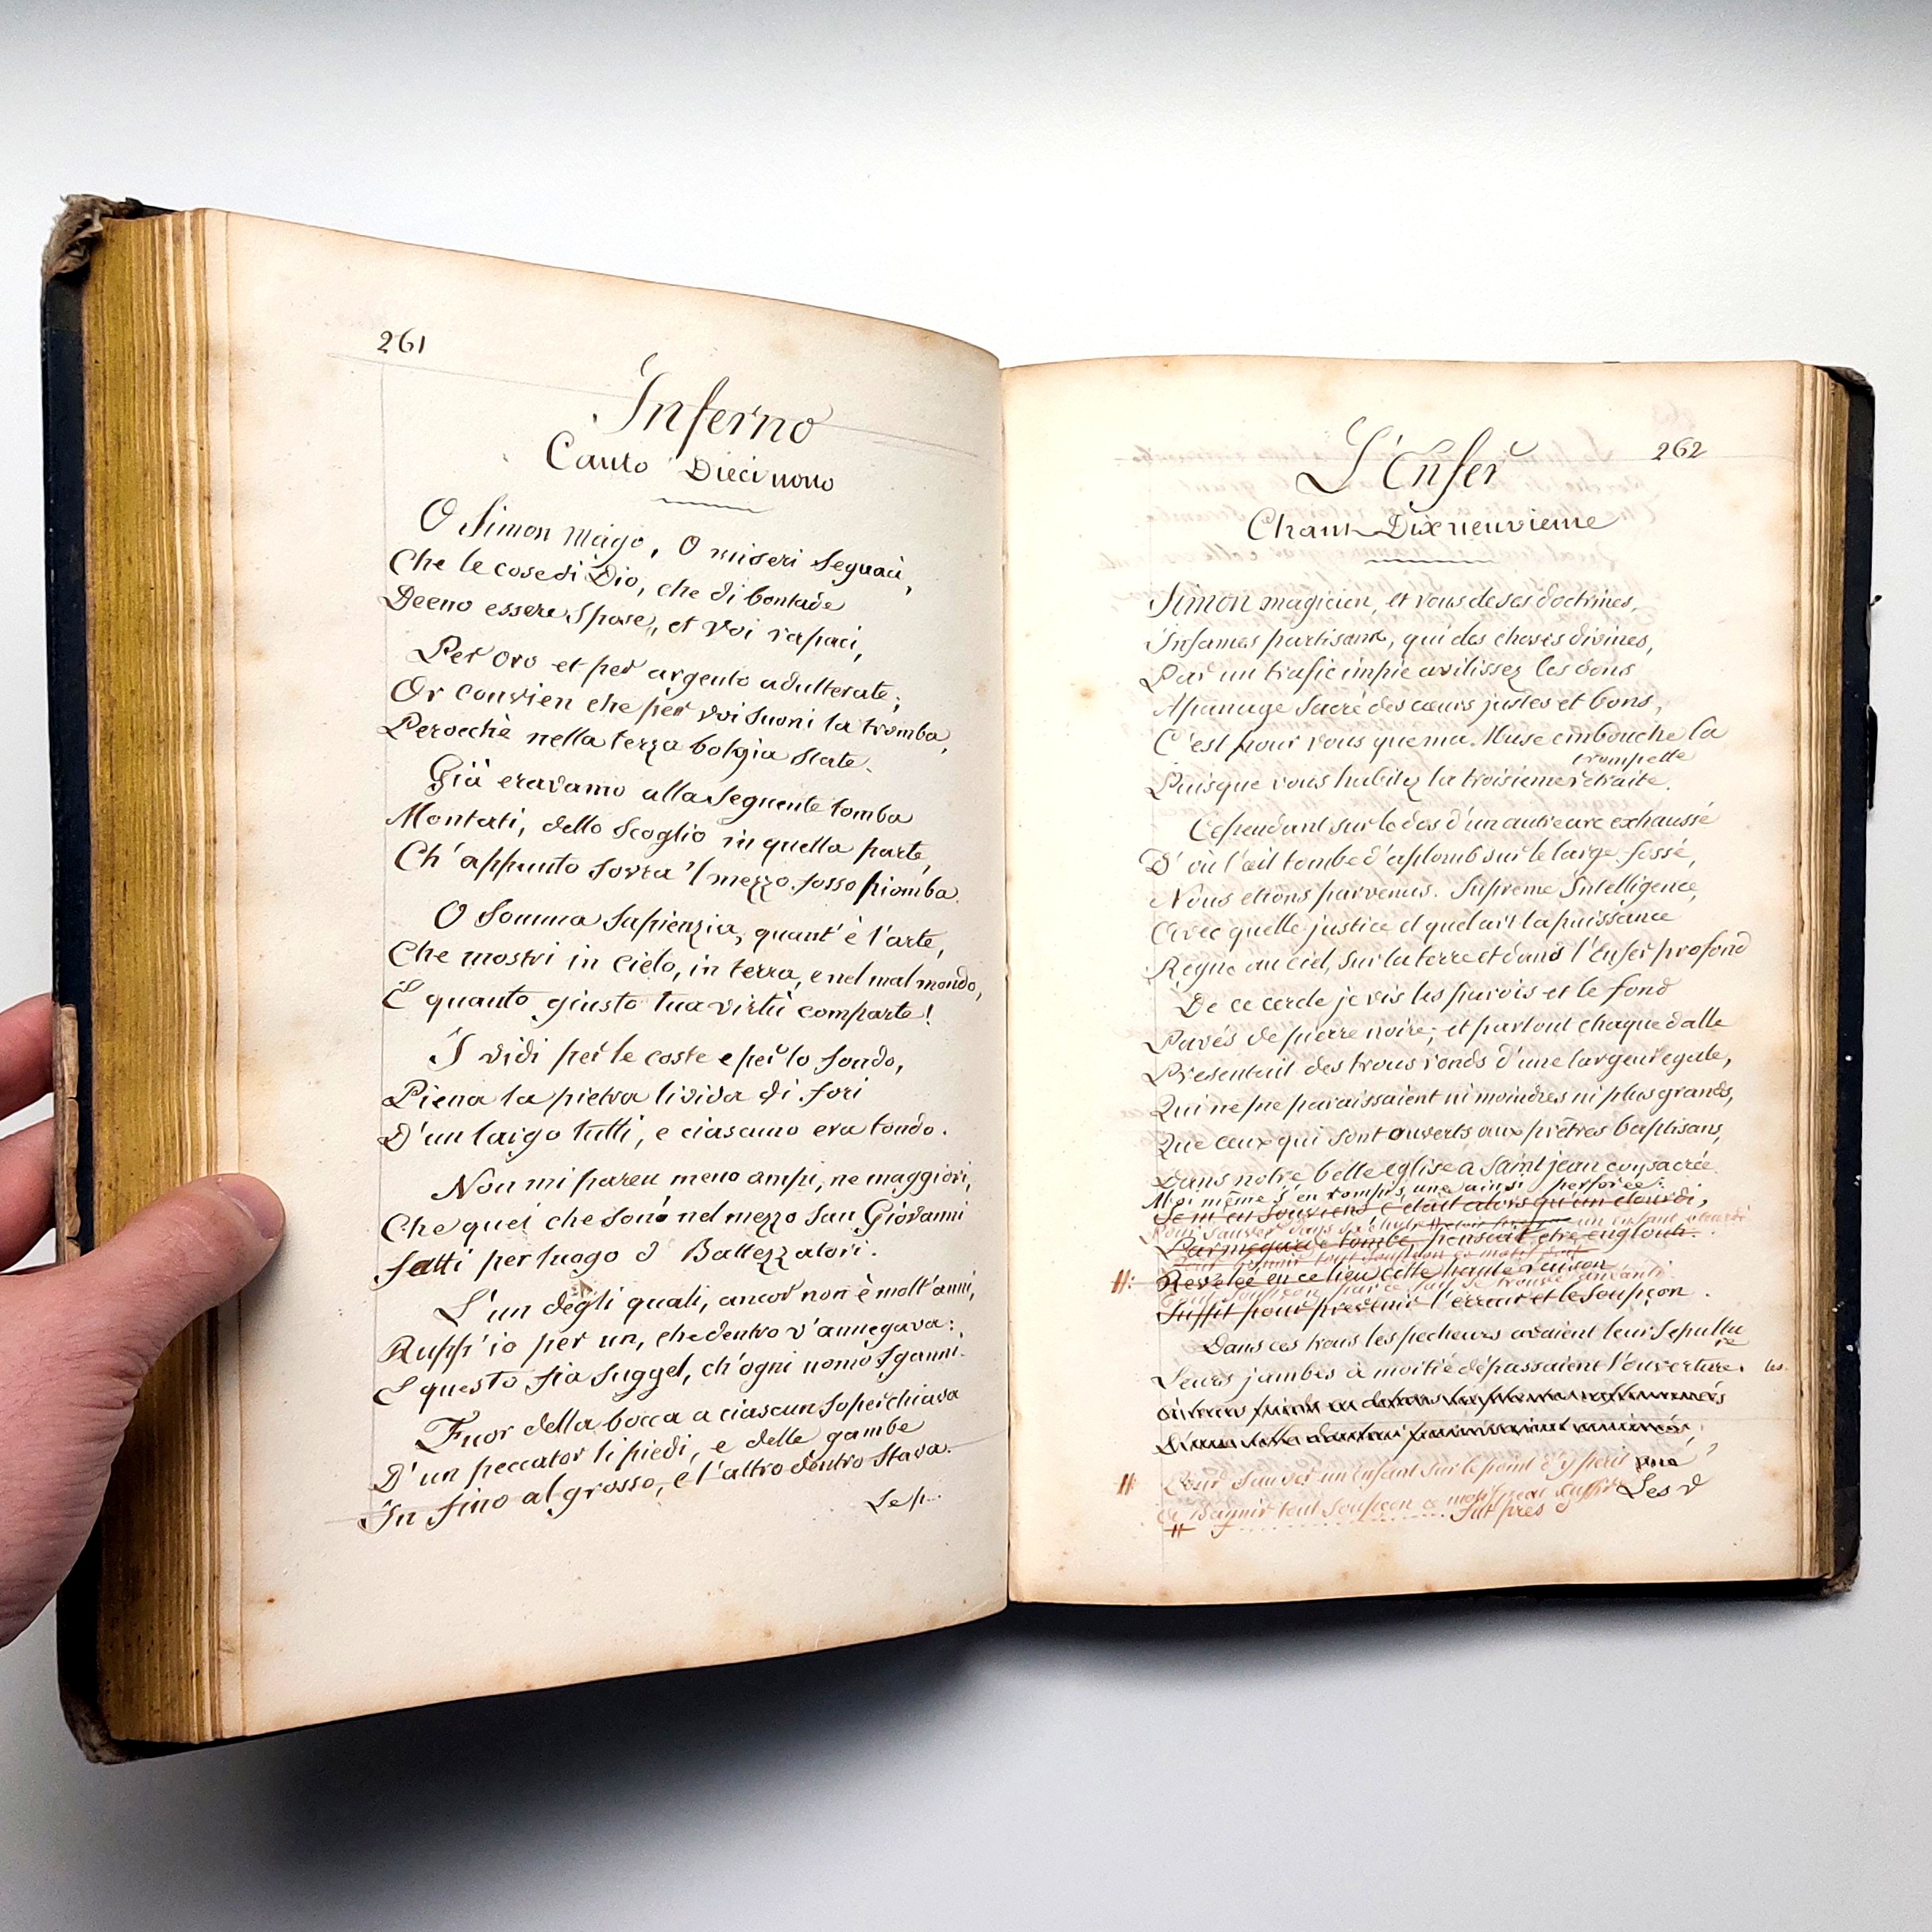 261
Inferno
Canto Diecinono
O Simon mago, O miseri seguaci,
Che le cose di Dio, che di bontade
Deeno essere spose, et voi rapaci,
Per oro et per argento adulterate;
Or convien che per voi suoni la tromba,
Perocchè nella terza bolgia state.
Già eravamo alla seguente tomba
Montati, dello scoglio in quella parte,
Ch'appunto sovra 'l mezzo fosso piomba.
O somma sapienzia, quant'è l'arte,
Che mostri in cielo, in terra, e nel mal mondo,
E quanto giusto tua virtù comparte!
I vidi per le coste e per lo fondo,
Piena la pietra livida di fori
D'un largo tutti, e ciascuno era tondo.
Non mi paren meno ampi, ne maggiori,
Che quei che sono nel mezzo San Giovanni
fatti per luogo d Battezzatori.
L'un degli quali, ancor non è molt'anni,
Rupp'io per un, che dentro v'annegava:
E questo fia suggel, ch'ogni uomo sganni.
Fuor della bocca a ciascun soperchiava
D'un peccator li piedi, e delle gambe
In fino al grosso, e l'altro dentro stava.
Le p..
L'Enfer
262
Chant Dixneuvieme
Simon magicien, et vous de ses doctrines,
Infames partisans, qui des choses divines,
Par un trafic impie avilissez les dons
Apanage sacré des cœurs justes et bons,
C'est pour vous que ma Muse embouche la
trompette
Puisque vous habitez la troisieme retraite.
Cependant sur le dos d'un autre arc exhaussé
D'où l'œil tombe d'aplomb sur le large fossé,
Nous etions parvenus. Supreme Intelligence,
Avec quelle justice et quel art ta puissance
Regne au ciel, sur la terre et dans l'Enfer profond
De ce cercle je vis les parois et le fond
Pavés de pierre noire; et partout chaque dalle
Presentait des trous ronds d'une largeur egale,
Qui ne me paraissaient ni moindres ni plus grands,
Que ceux qui sont ouverts aux prêtres baptisans,
Dans notre belle eglise a Saint jean consacrée
Moi même j'en rompis une ainsi perforée:
Je m'en souviens c'était alors qu'un étourdi,
un enfant étourdi
Par megarde tombé, pensait être englouti.
#: Revelée en ce lieu cette haute raison
Suffit pour prevenir l'erreur et le soupçon.
Dans ces trous les pecheurs avaient leur sepultu
re
Leurs jambes à moitié dépassaient l'ouverture. les
# Pour sauver un enfant sur le point d'y perir
Bannir tout soupçon ce motif peut suffir
Les d
# fut pres d